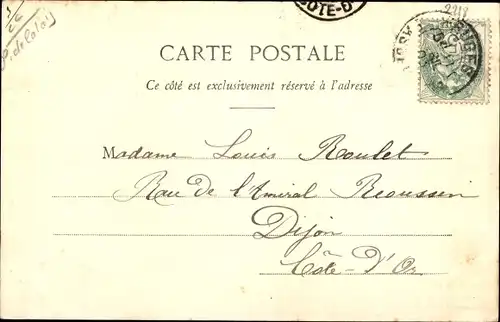 COTE-D'
CARTE POSTALE
Ce côté est exclusivement réservé à l'adresse
Madame Louis Roulet
Rue de l'Amiral Reoussin
à Dijon
Côte-d'Or